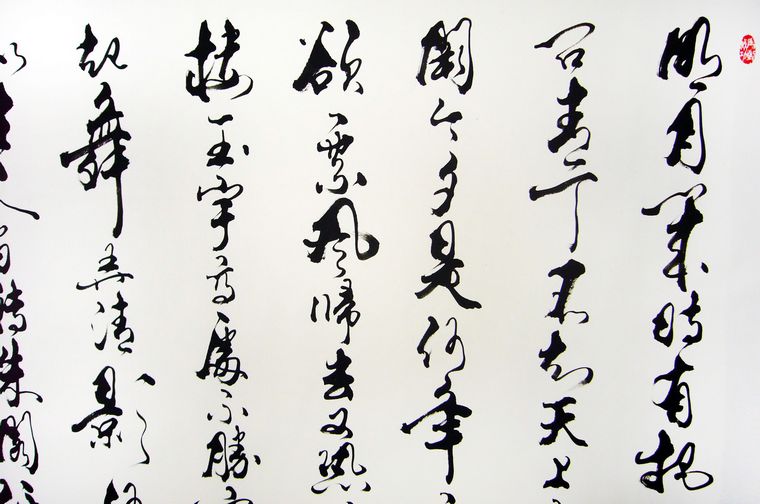 明月幾時有把
問青天不知天上
闕今夕是何年
欲乘風歸去又恐
樓玉宇高處不勝
起舞弄清影
似在人間轉朱閣